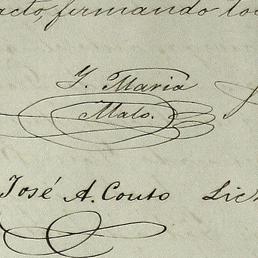 acto, firmando los
J. Maria
Malo.
José A. Couto Lic